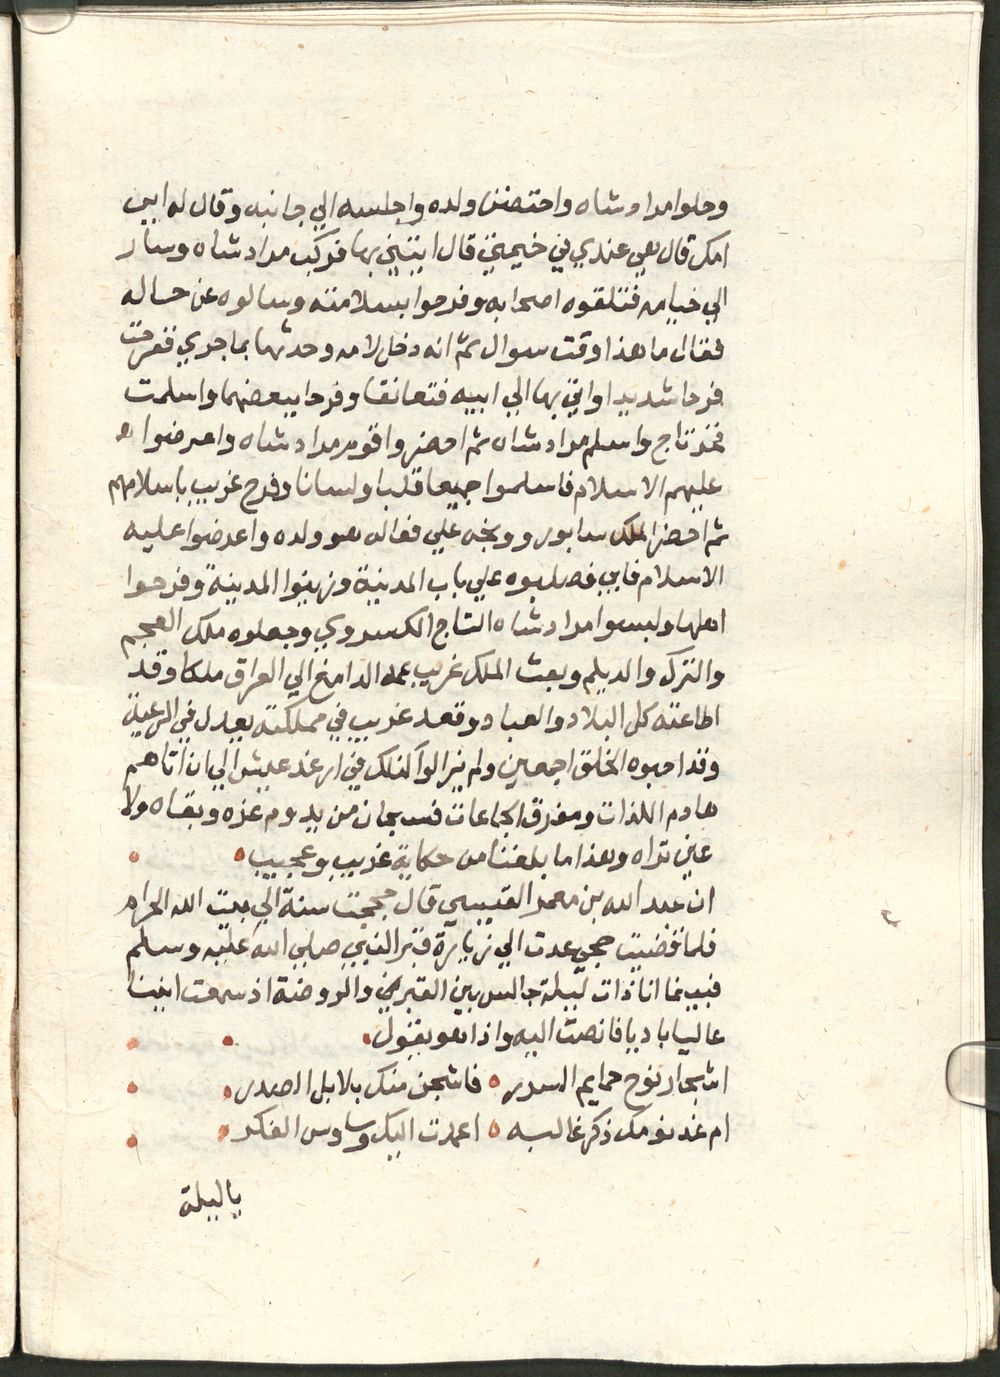 وحلوا مراد شاه واحتضنن ولده واجلسه الي جانبه وقال له ابين
امك قال هي عندي في خيمتي قال ايتيني بها فركب مراد شاه وسار
الي خيامه فتلقوه اصحابه وفرحوا بسلامته وسالوه عن حاله
فقال ما هذا وقت سوال ثم انه دخل لامه وحدثها بما جري ففرحت
فرحا شديدا واتي بها الي ابيه فتعانقا وفرحا ببعضهما واسلمت
فخرتاج واسلم مراد شاه ثم احضروا قوم مراد شاه واعرضوا
عليهم الاسلام فاسلموا جميعا قلبا ولسانا وفرح غريب باسلامهم
ثم احضر الملك سابور ووبخه علي فعاله هو وولده واعرضوا عليه
الاسلام فابي فصلبوه علي باب المدينة وزينوا المدينة وفرحوا
اهلها ولبسوا مراد شاه التاج الكسروي وجعلوه ملك العجم
والترك والديلم وبعث الملك غريب عمه الدامغ الي العراق ملكا وقد
اطاعته كل البلاد والعباد وقعد غريب في مملكته يعدل في الرعية
وقد احبوه الخلق اجمعين ولم يزالوا كذلك في ارغد عيش الي ان اتاهم
هادم اللذات ومفرق الجماعات فسبحان من يدوم عزه وبقاه ولا
عين تراه وهذا ما بلغنا من حكاية غريب وعجيب
ان عبد الله بن معمر القيسي قال حججت سنة الي بيت الله الحرام
فلما قضيت حجي عدت الي زيارة قبر النبي صلي الله عليه وسلم
فبينما انا ذات ليلة جالس بين القبر والروضة اذ سمعت انينا
عاليا باديا فانصت اليه واذا هو يقول
اشجاك نوح حمايم السدر فاشجن منك بلابل الصدر
ام غد نومك ذكر غالبه اهدت اليك وساوس الفكر
يا ليلة